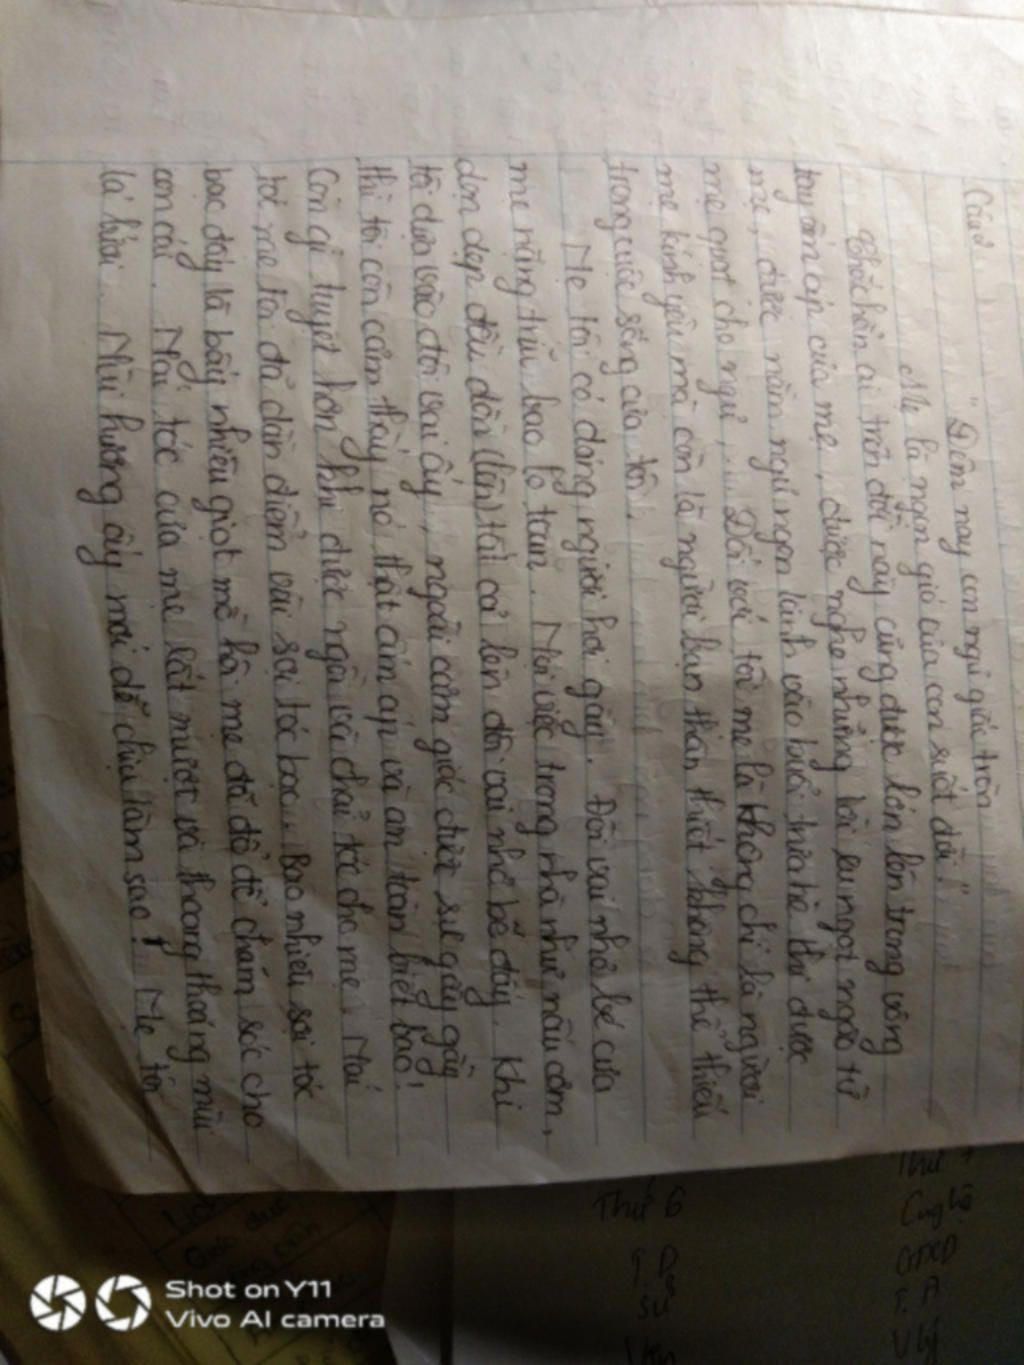 Câu2.
"Đêm nay con ngủ giấc tròn
Mẹ là ngọn gió của con suốt đời"
Chắc hẳn ai trên đời này cũng được lớn lên trong vòng
tay ấm áp của mẹ, được nghe những lời ru ngọt ngào từ
mẹ, được nằm ngủ ngon lành vào buổi trưa hè thì được
mẹ quạt cho ngủ,... Đối với tôi mẹ là không chỉ là người
mẹ kính yêu mà còn là người bạn thân thiết không thể thiếu
trong cuộc sống của tôi.
Mẹ tôi có dáng người hơi gầy. Đôi vai nhỏ bé của
mẹ nặng trĩu bao lo toan. Mọi việc trong nhà như nấu cơm,
dọn dẹp đều dồn (lên) tất cả lên đôi vai nhỏ bé đấy. Khi
tôi dựa vào đôi vai ấy, ngoài cảm giác được sự gầy gầy
thì tôi còn cảm thấy nó thật ấm áp và an toàn biết bao!
Còn gì tuyệt hơn khi được ngồi và chải tóc cho mẹ. Mái
tóc mẹ tôi đã dần điểm vài sợi tóc bạc. Bao nhiêu sợi tóc
bạc đấy là bấy nhiêu giọt mồ hôi mẹ đã đổ để chăm sóc cho
con cái. Mái tóc của mẹ lất mượt và thoang thoảng mùi
lá bưởi. Mùi hương ấy mới dễ chịu làm sao! Mẹ tôi
Thứ 6
T. D
Sử
Văn
Thứ 7
Cnghệ
GDCD
T. A
V lý
Shot on Y11
Vivo AI camera